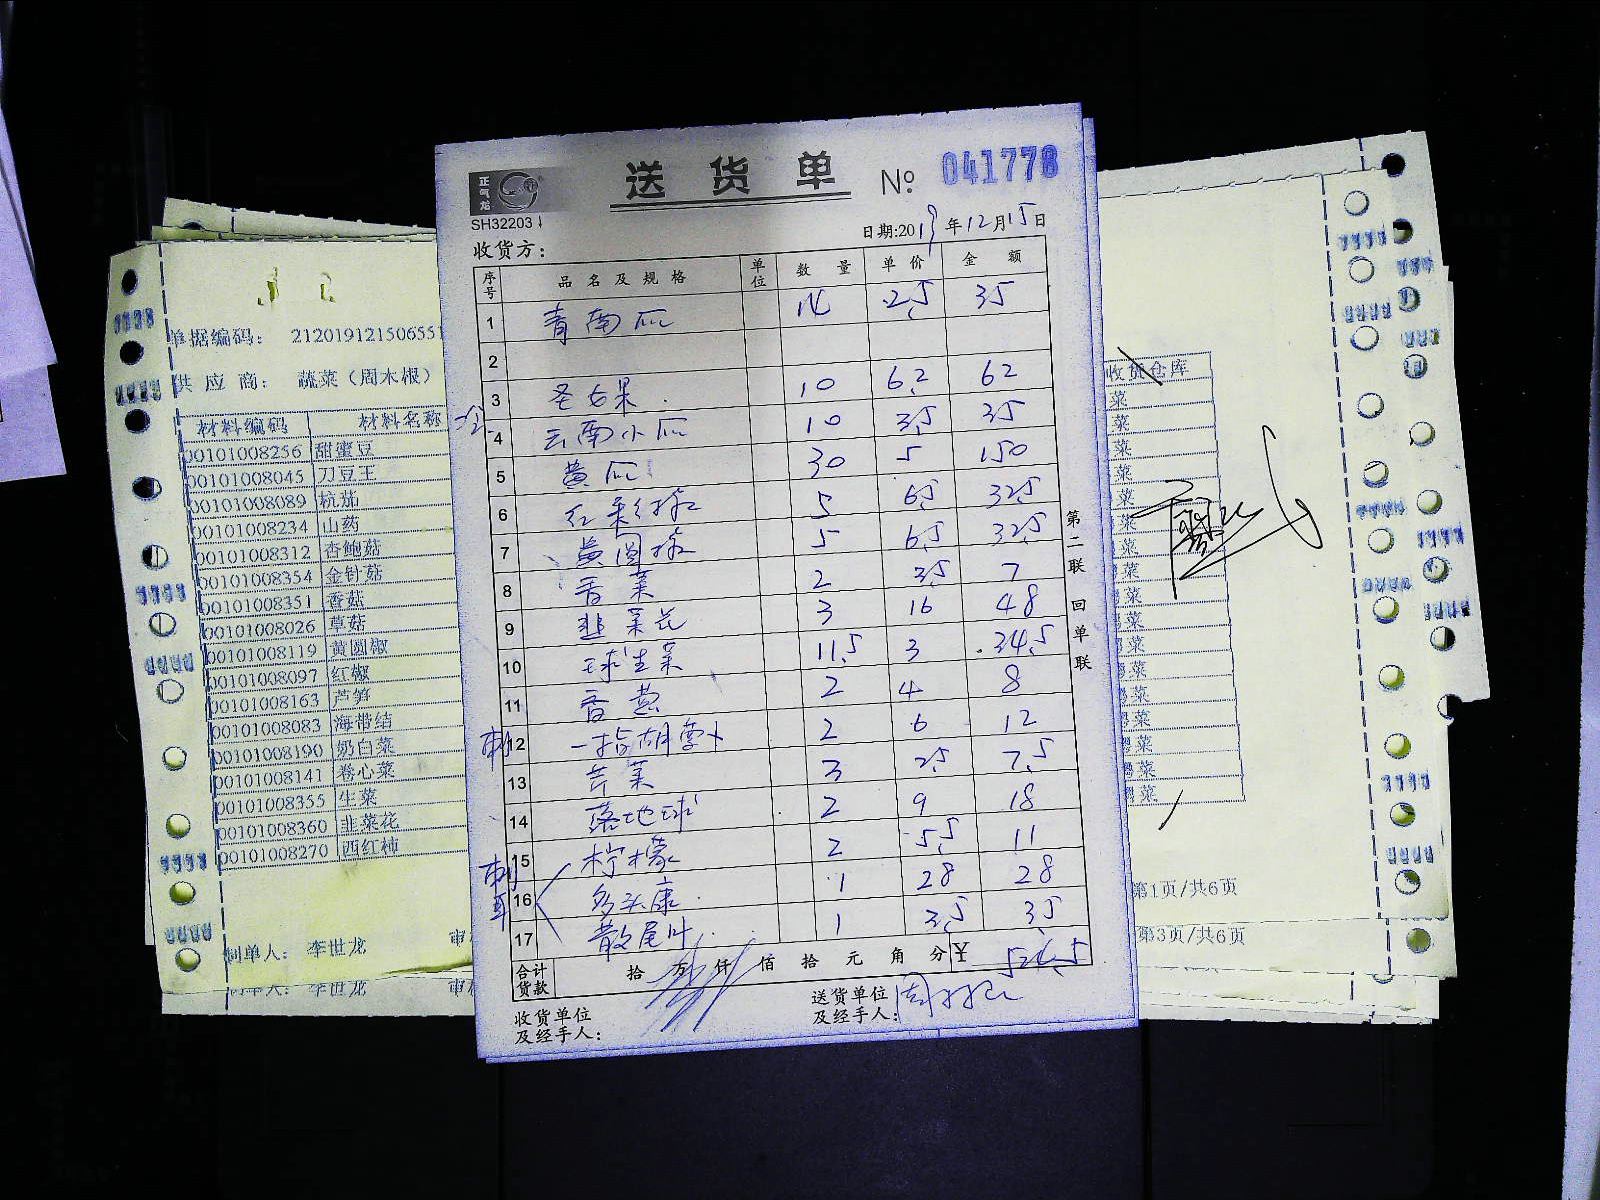 正气龙
送货单 № 041778
SH32203
日期:2019年12月15日
收货方:
序号 品名及规格 单位 数量 单价 金额
1 青南瓜 14 2.5 35
2
3 圣女果 10 6.2 62
4 云南小瓜 10 3.5 35
5 黄瓜 30 5 150
6 红彩椒 5 6.5 32.5
7 黄圆椒 5 6.5 32.5
8 香菜 2 3.5 7
9 韭菜花 3 16 48
10 球生菜 11.5 3 34.5
11 香葱 2 4 8
12 一指胡萝卜 2 6 12
13 芹菜 3 2.5 7.5
14 落地球 2 9 18
15 柠檬 2 5.5 11
16 多头康 1 28 28
17 散尾叶 1 3.5 3.5
合计货款 拾 万 仟 佰 拾 元 角 分 ¥ 524.5
收货单位及经手人:
送货单位及经手人:
第二联 回单联
单据编码: 212019121506551
供应商: 蔬菜(周木椒)
材料编码 材料名称
00101008256 甜蜜豆
00101008045 刀豆王
00101008089 杭茄
00101008234 山药
00101008312 杏鲍菇
00101008354 金针菇
00101008351 香菇
00101008026 草菇
00101008119 黄圆椒
00101008097 红椒
00101008163 芦笋
00101008083 海带结
00101008190 奶白菜
00101008141 卷心菜
00101008355 生菜
00101008360 韭菜花
00101008270 西红柿
制单人: 李世龙 审
制单人: 李世龙 审
收货仓库
菜
菜
菜
菜
菜
菜
菜
菜
菜
菜
菜
菜
菜
粤菜
粤菜
粤菜
粤菜
第1页/共6页
第3页/共6页